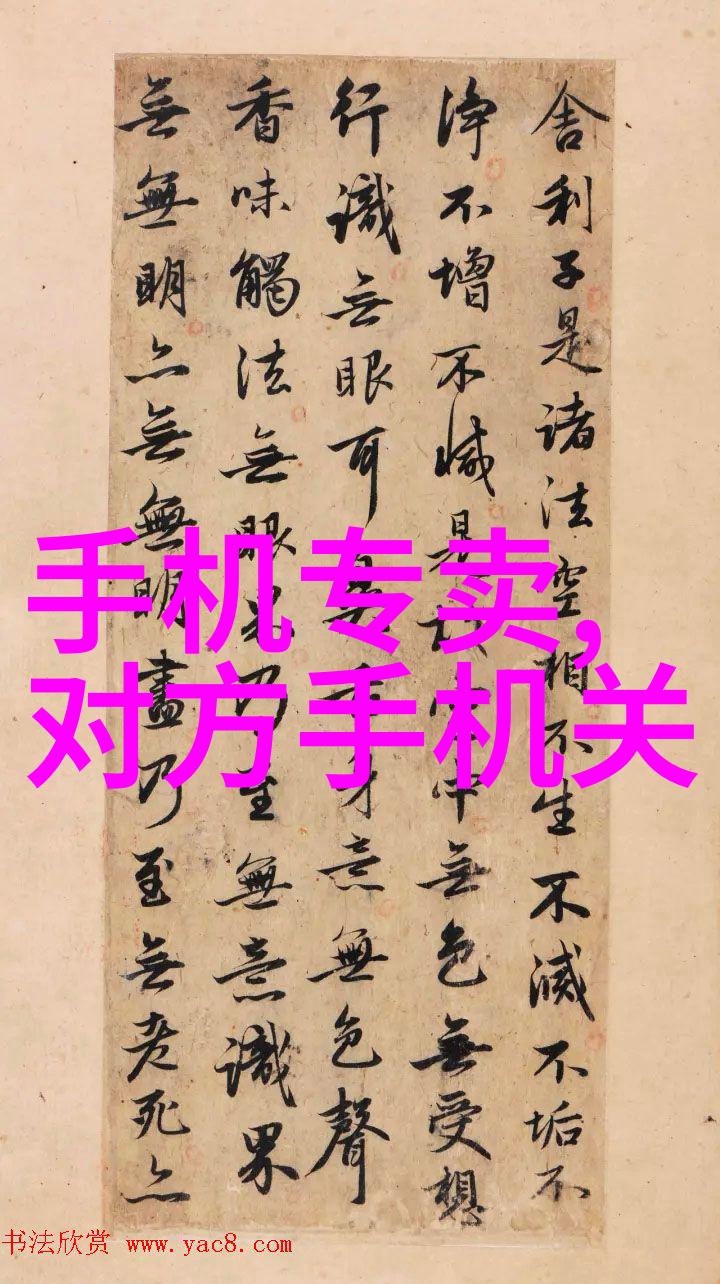 舍利子是诸法空相不生不滅不垢不
淨不增不減是故空中無色無受想
行識無眼耳鼻舌身意無色聲
香味觸法無眼界乃至無意識界
無無明亦無無明盡乃至無老死亦
手机专卖,
对方手机关
书法欣赏 www.yac8.com